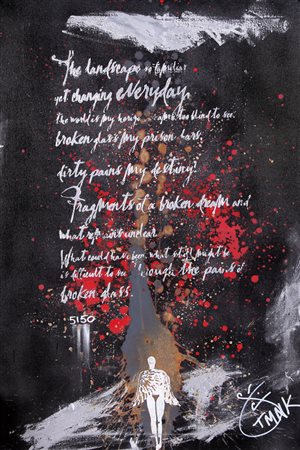 The landscape so familiar
yet changing everyday,
the world is my often too blind to see.
broken glass my prison bars,
dirty pains my destiny!
Fragments of a broken dream and
what remains unclear.
What could have been, what still might be
is difficult to see through the pains of
broken glass.
5150
TMNK